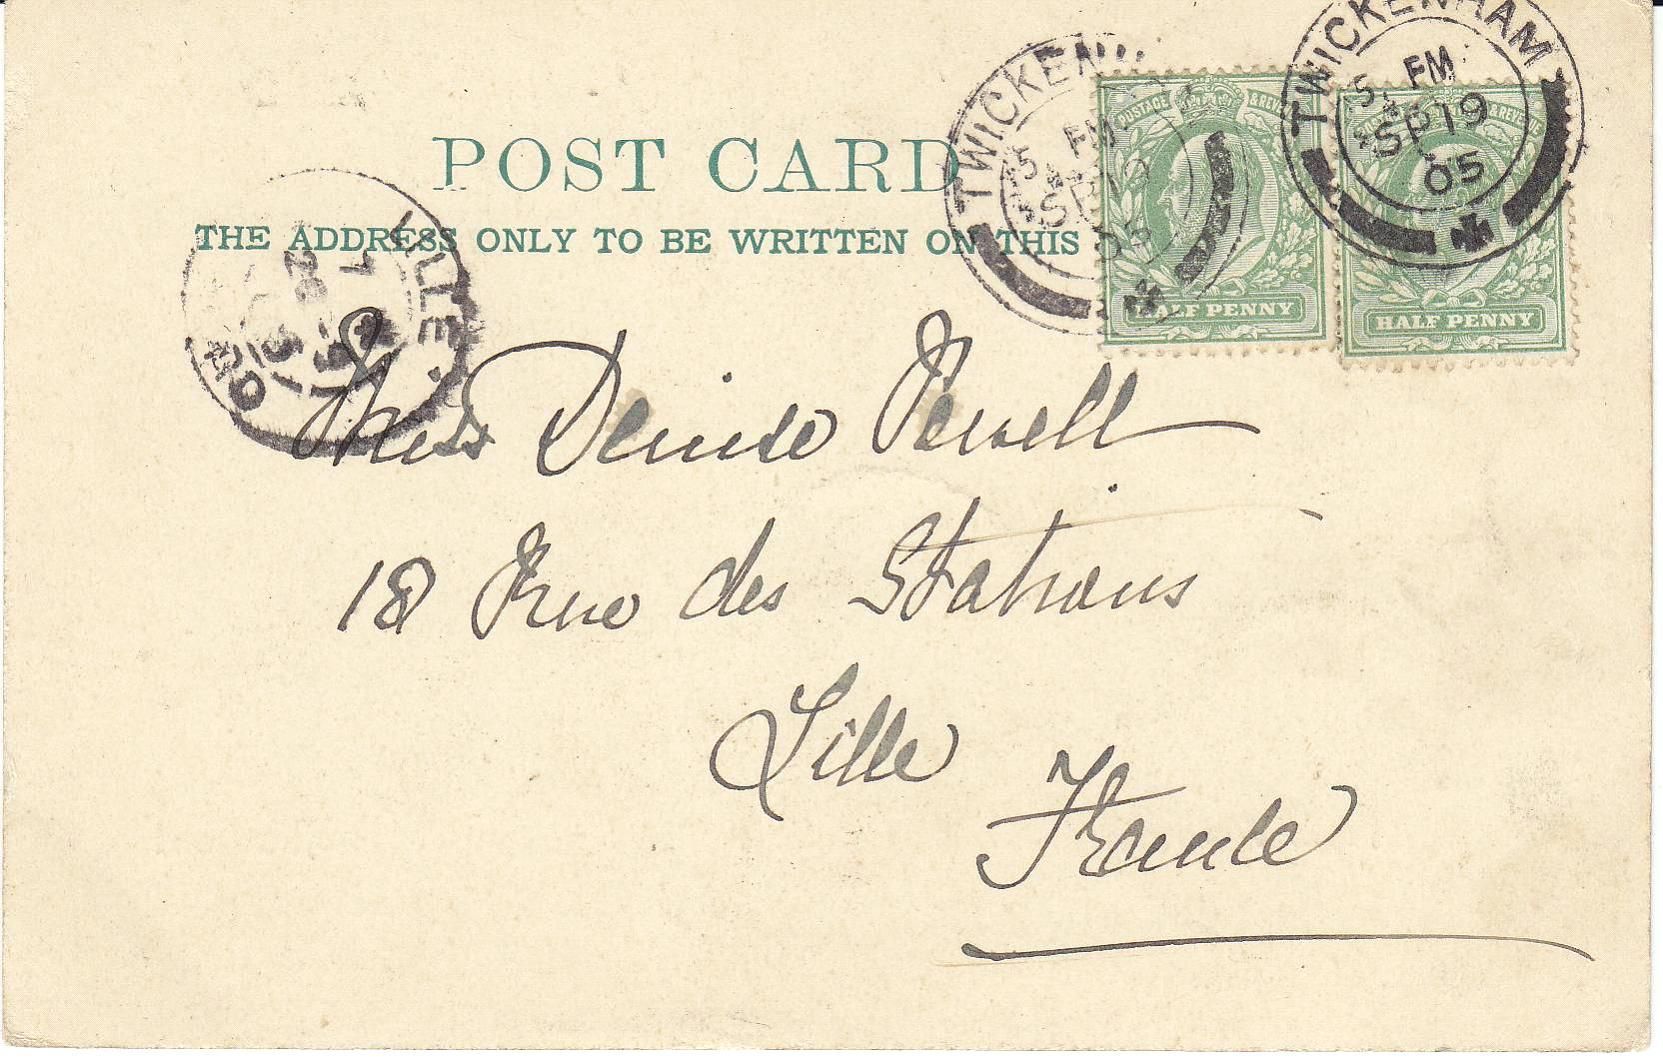 POST CARD
THE ADDRESS ONLY TO BE WRITTEN ON THIS
TWICKENH
5. PM
SP 19
05
TWICKENHAM
5. PM
SP 19
05
POSTAGE & REVE
HALF PENNY
& REVENUE
HALF PENNY
LILLE
NORD
Miss Denise
18 Rue des Stations
Lille
France